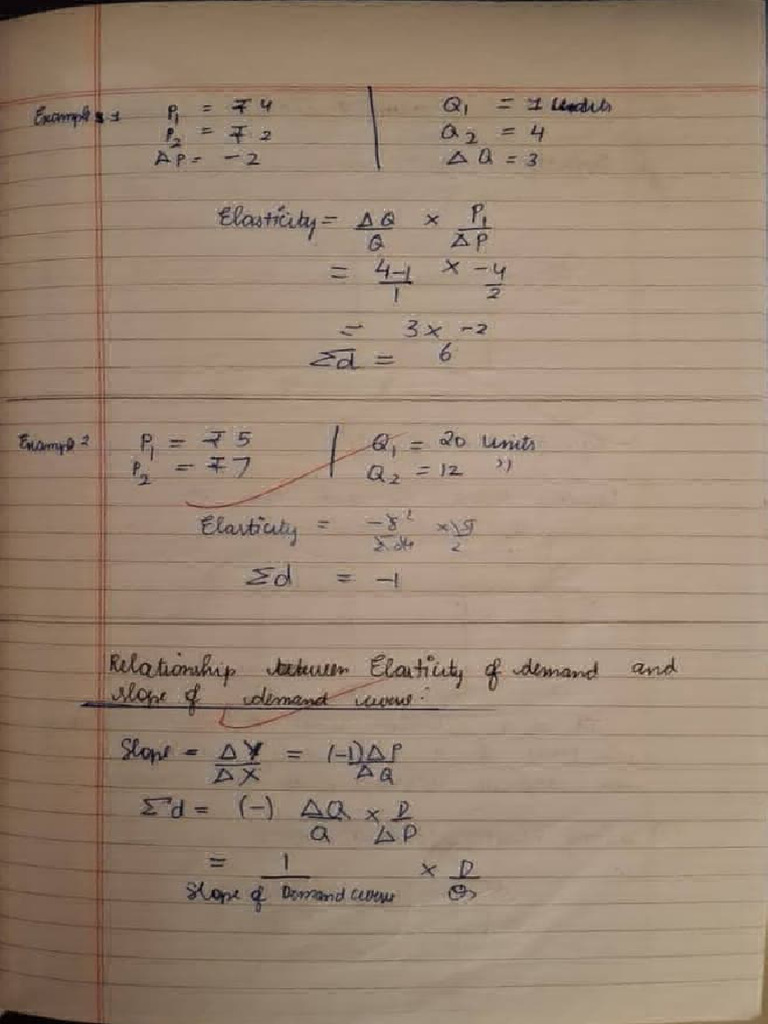 Example 1 P₁ = ₹ 4 | Q₁ = 1 Units
P₂ = ₹ 2 | Q₂ = 4
ΔP = -2 | ΔQ = 3
Elasticity = ΔQ/Q × P₁/ΔP
= 4-1/1 × -4/2
= 3 × -2
Σd = 6
Example 2 P₁ = ₹ 5 | Q₁ = 20 Units
P₂ = ₹ 7 | Q₂ = 12 "
Elasticity =
Σd = -1
Relationship between Elasticity of demand and
slope of demand curve:
Slope = ΔY/ΔX = (-1)ΔP/ΔQ
Σd = (-) ΔQ/Q × P/ΔP
= 1/Slope of Demand curve × P/Q